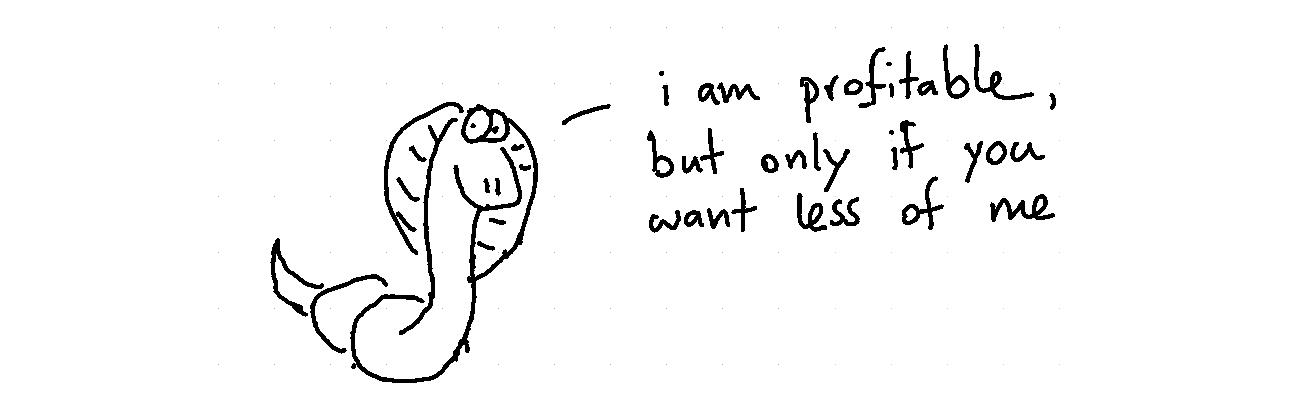 i am profitable,
but only if you
want less of me